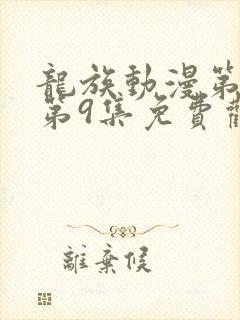 龍族動漫第
第9集免費
離棄候